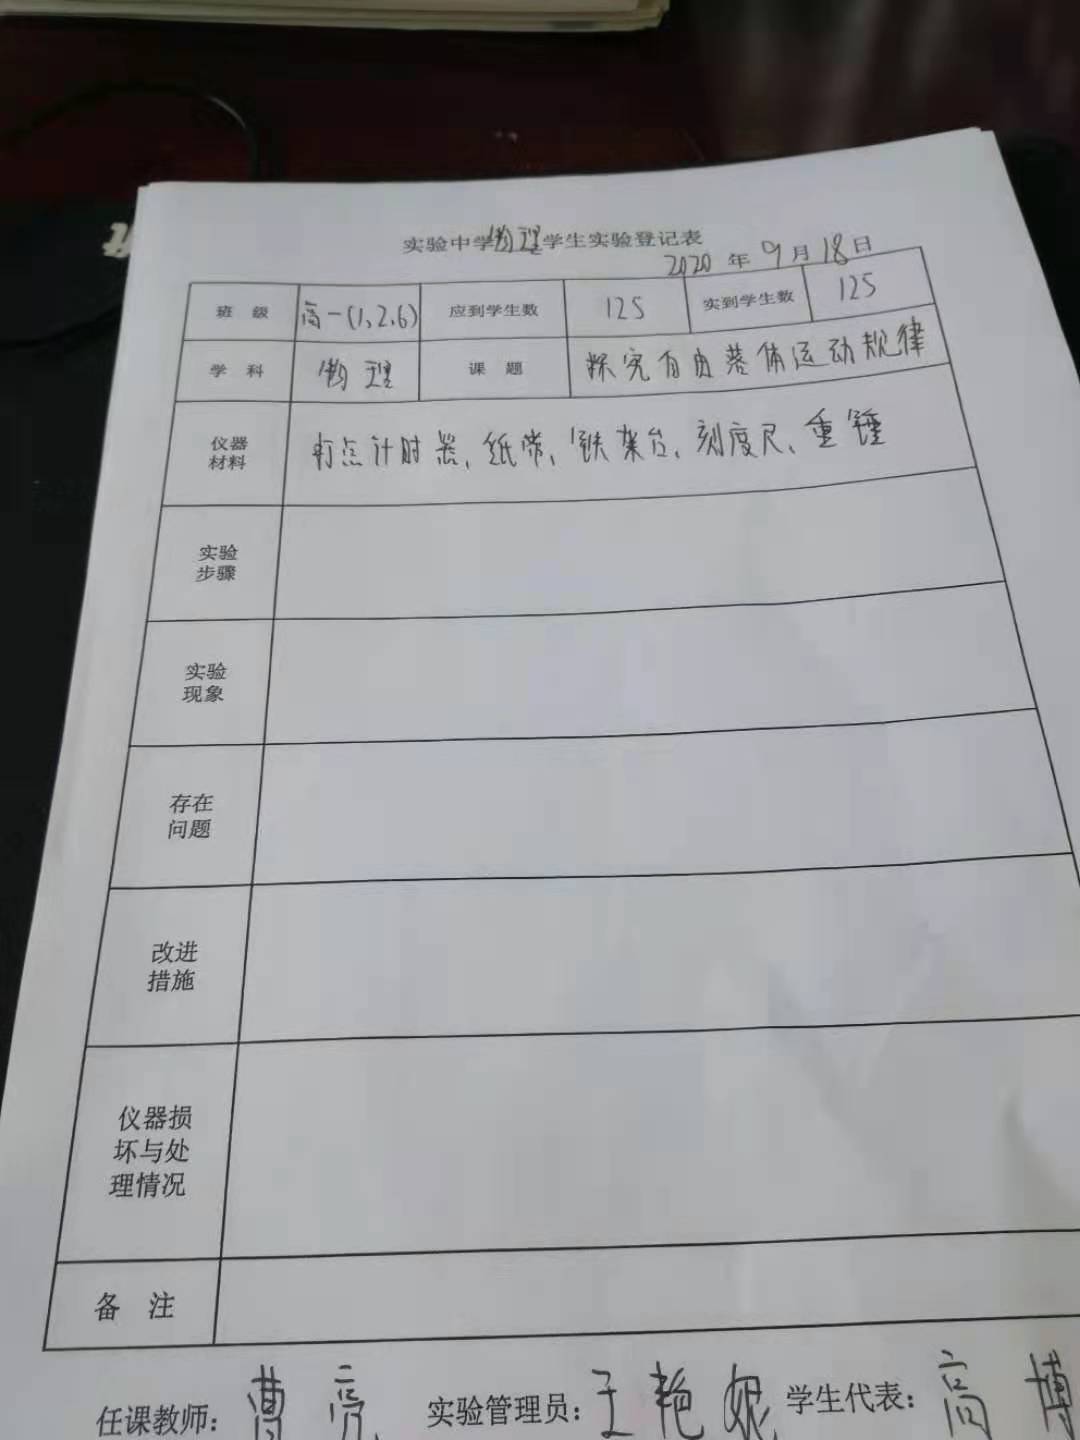 实验中学物理学生实验登记表
2020 年 9 月 18 日
班 级 高一(1,2,6) 应到学生数 125 实到学生数 125
学 科 物理 课 题 探究自由落体运动规律
仪器
材料
打点计时器、纸带、铁架台、刻度尺、重锤
实验
步骤
实验
现象
存在
问题
改进
措施
仪器损
坏与处
理情况
备 注
任课教师: 曹亮 实验管理员: 王艳妮 学生代表: 高博